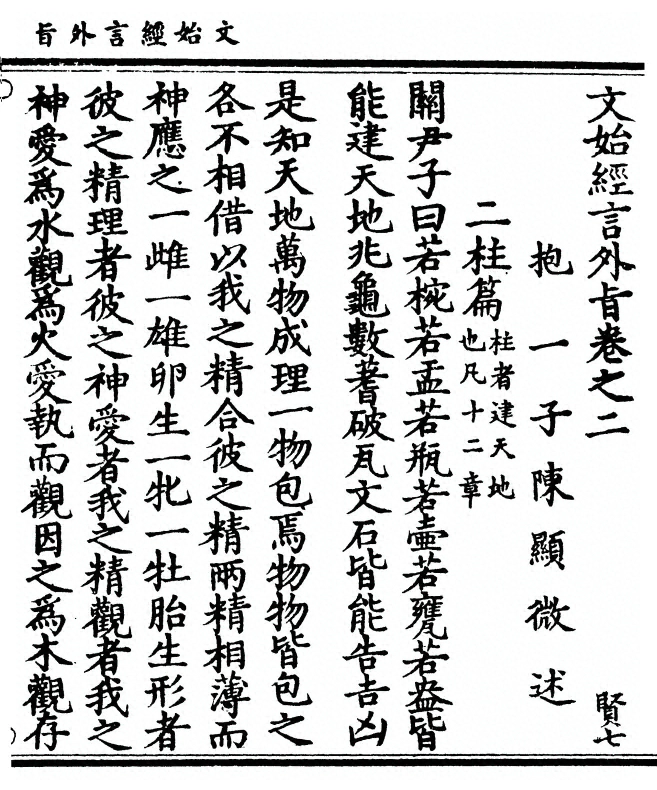 文始經言外旨
文始經言外旨卷之二
賢七
抱一子陳顯微述
二柱篇
柱者建天地
也凡十二章
關尹子曰若椀若盂若瓶若壺若甕若盎皆
能建天地兆龜數蓍破瓦文石皆能告吉凶
是知天地萬物成理一物包焉物物皆包之
各不相借以我之精合彼之精兩精相薄而
神應之一雌一雄卵生一牝一牡胎生形者
彼之精理者彼之神愛者我之精觀者我之
神愛為水觀為火愛執而觀因之為木觀存